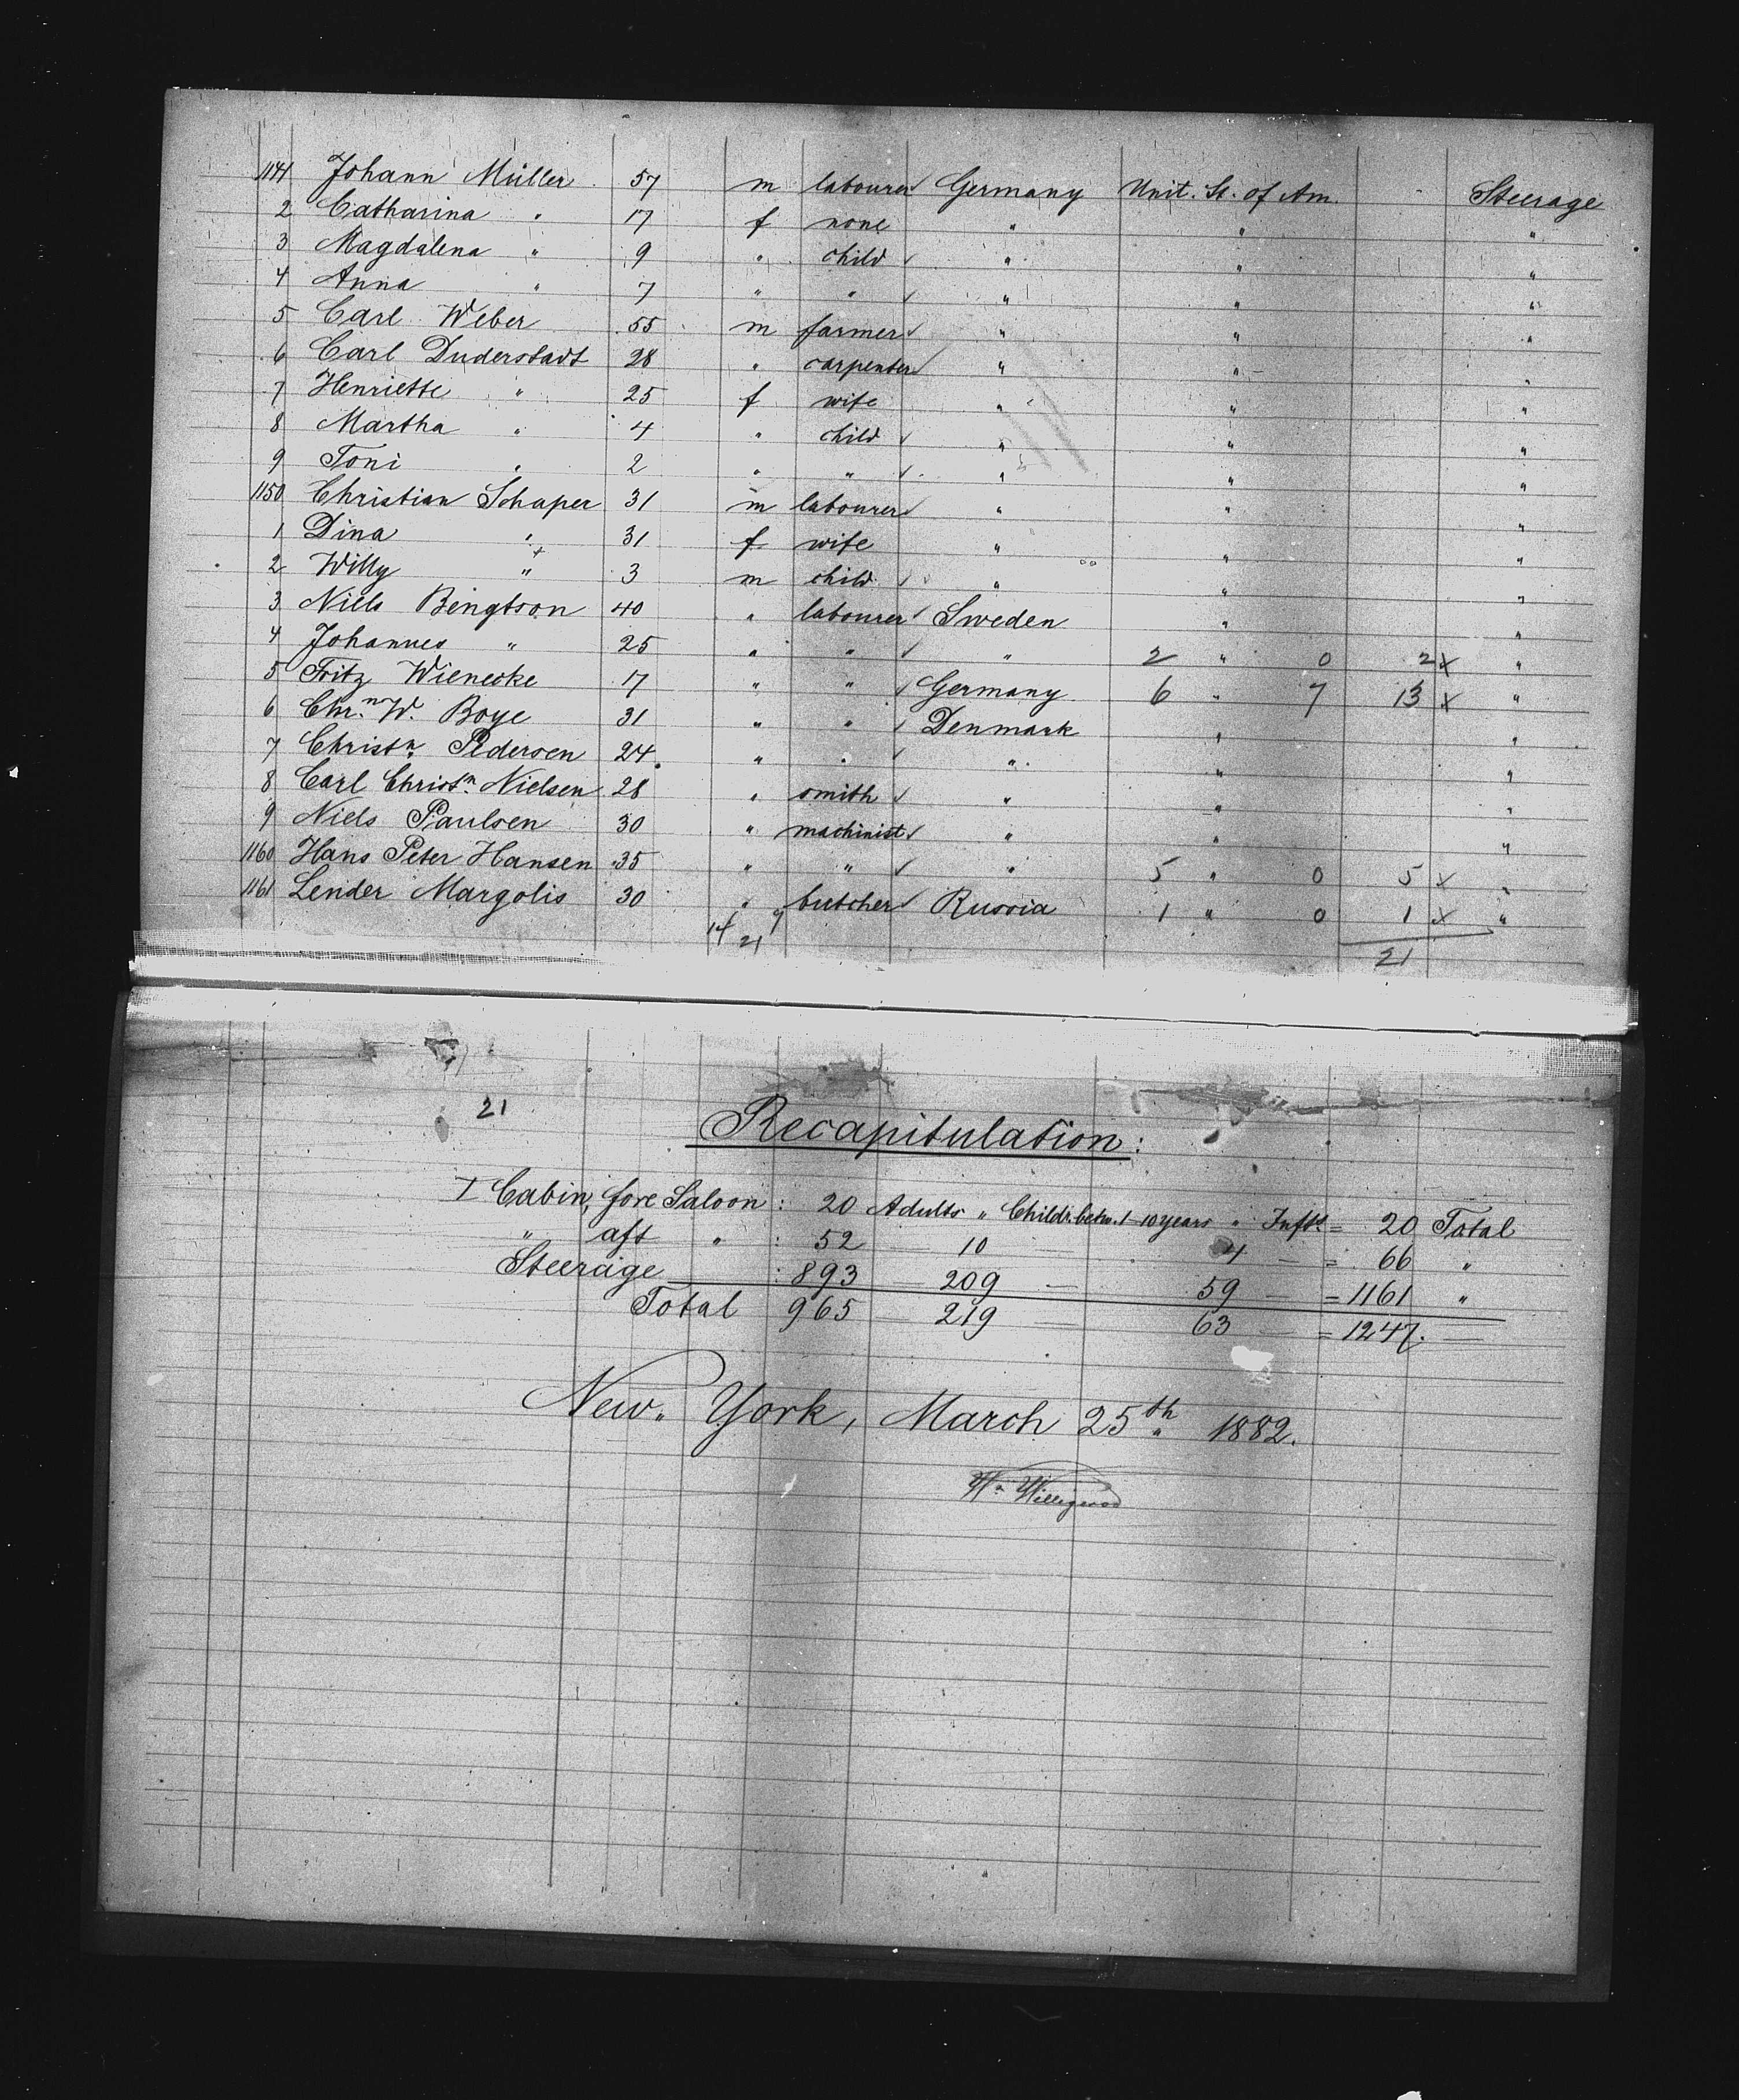 1141 Johann Müller 57 m labourer Germany Unit. St. of Am. Steerage
2 Catharina " 17 f none " " "
3 Magdalena " 9 " child " " "
4 Anna " 7 " " " " "
5 Carl Weber 55 m farmer " " "
6 Carl Duderstadt 28 " carpenter " " "
7 Henriette " 25 f wife " " "
8 Martha " 4 " child " " "
9 Toni " 2 " " " " "
1150 Christian Schaper 31 m labourer " " "
1 Dina " 31 f wife " " "
2 Willy " 3 m child " " "
3 Niels Bengtson 40 " labourer Sweden " "
4 Johannes " 25 " " " 2 " 0 2 x "
5 Fritz Wienecke 17 " " Germany 6 " 7 13 x "
6 Chr.n W. Boye 31 " " Denmark " "
7 Christn. Pedersen 24 " " " " "
8 Carl Christn. Nielsen 28 " smith " " "
9 Niels Paulsen 30 " machinist " " "
1160 Hans Peter Hansen 35 " " " 5 " 0 5 x "
1161 Lender Margolis 30 " butcher Russia 1 " 0 1 x "
14 7
21 21
21
Recapitulation:
I Cabin, fore Saloon: 20 Adults " Childr. betw. 1-10 years " Infts. = 20 Total
" aft " : 52 — 10 — 4 — = 66 "
Steerage : 893 — 209 — 59 — = 1161 "
Total 965 — 219 — 63 — = 1247. —
New-York, March 25th 1882.